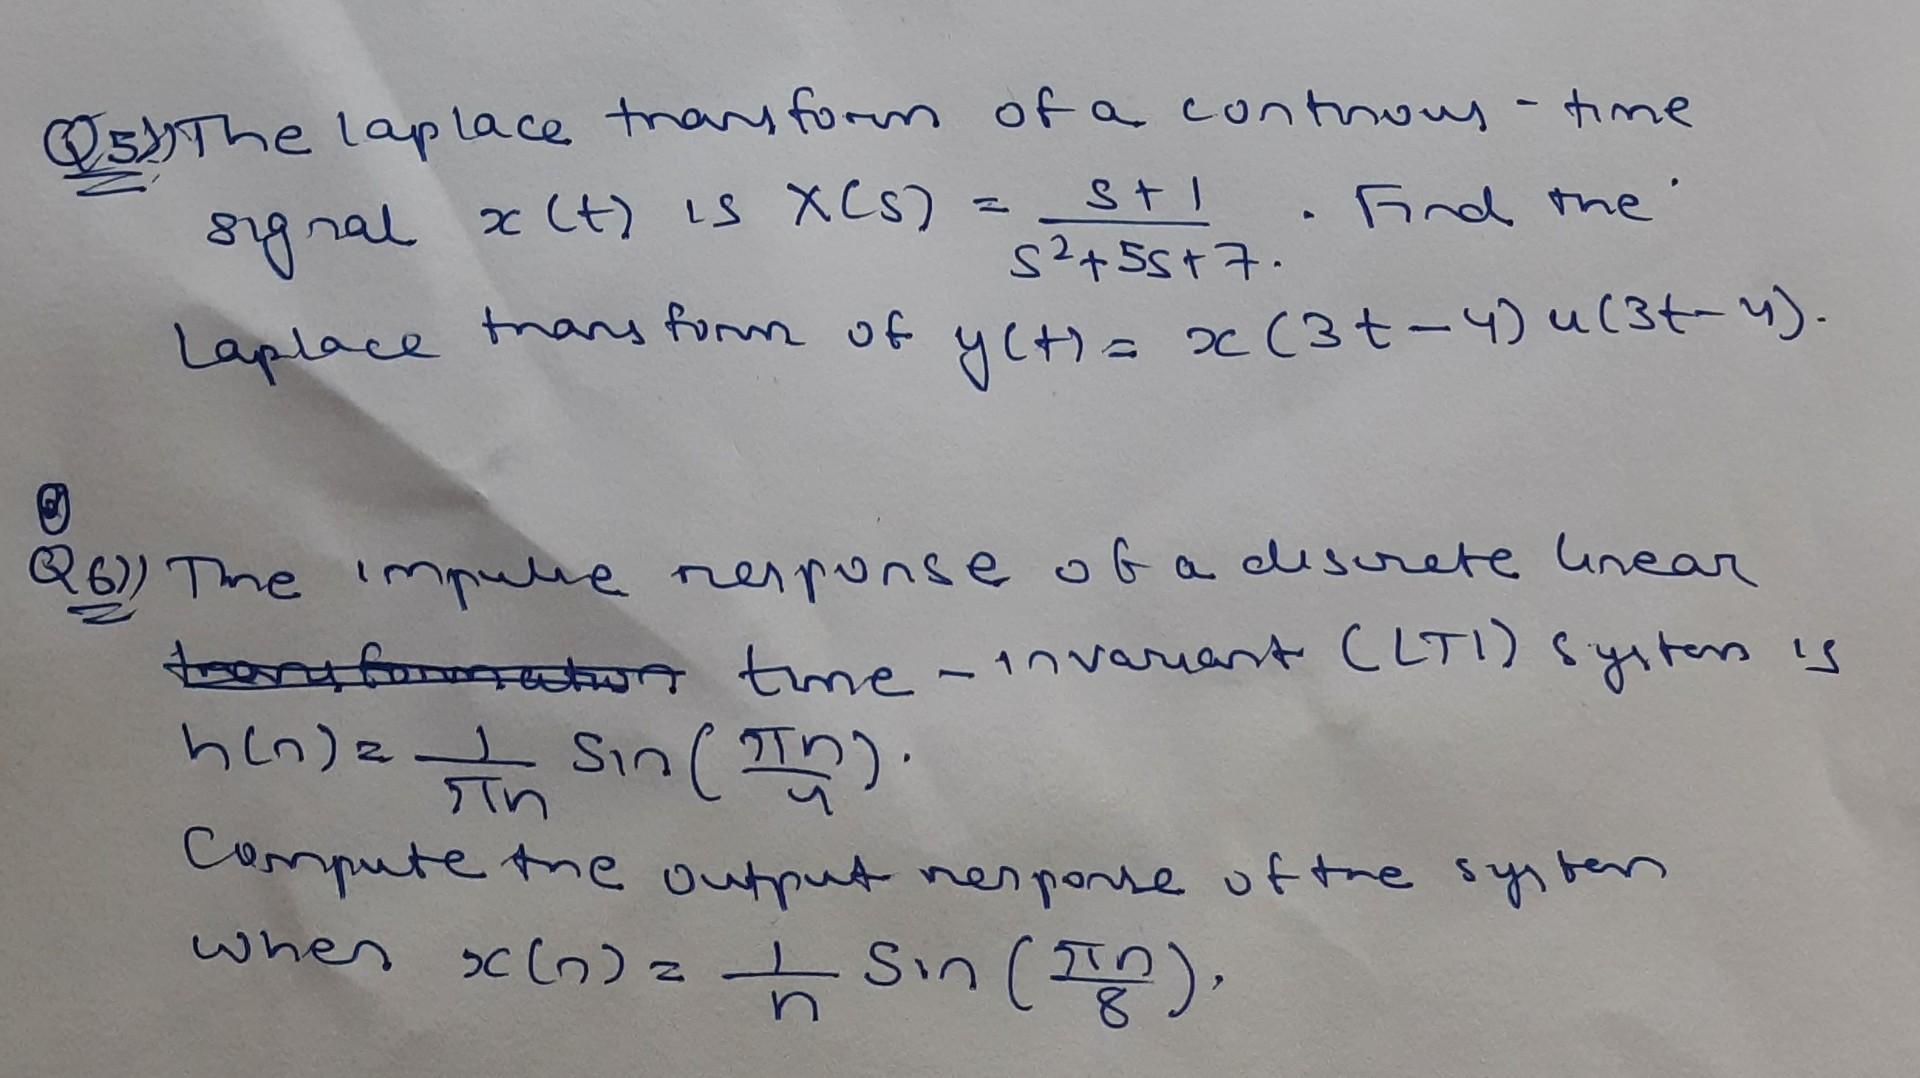 Q5)) The Laplace transform of a continous-time
signal x(t) is X(s) = (s+1)/(s²+5s+7). Find the
Laplace transform of y(t) = x(3t-4)u(3t-4).
Q6)) The impulse response of a discrete linear
time-invariant (LTI) system is
h(n) = 1/(πn) Sin(πn/4).
Compute the output response of the system
when x(n) = 1/n Sin(πn/8).